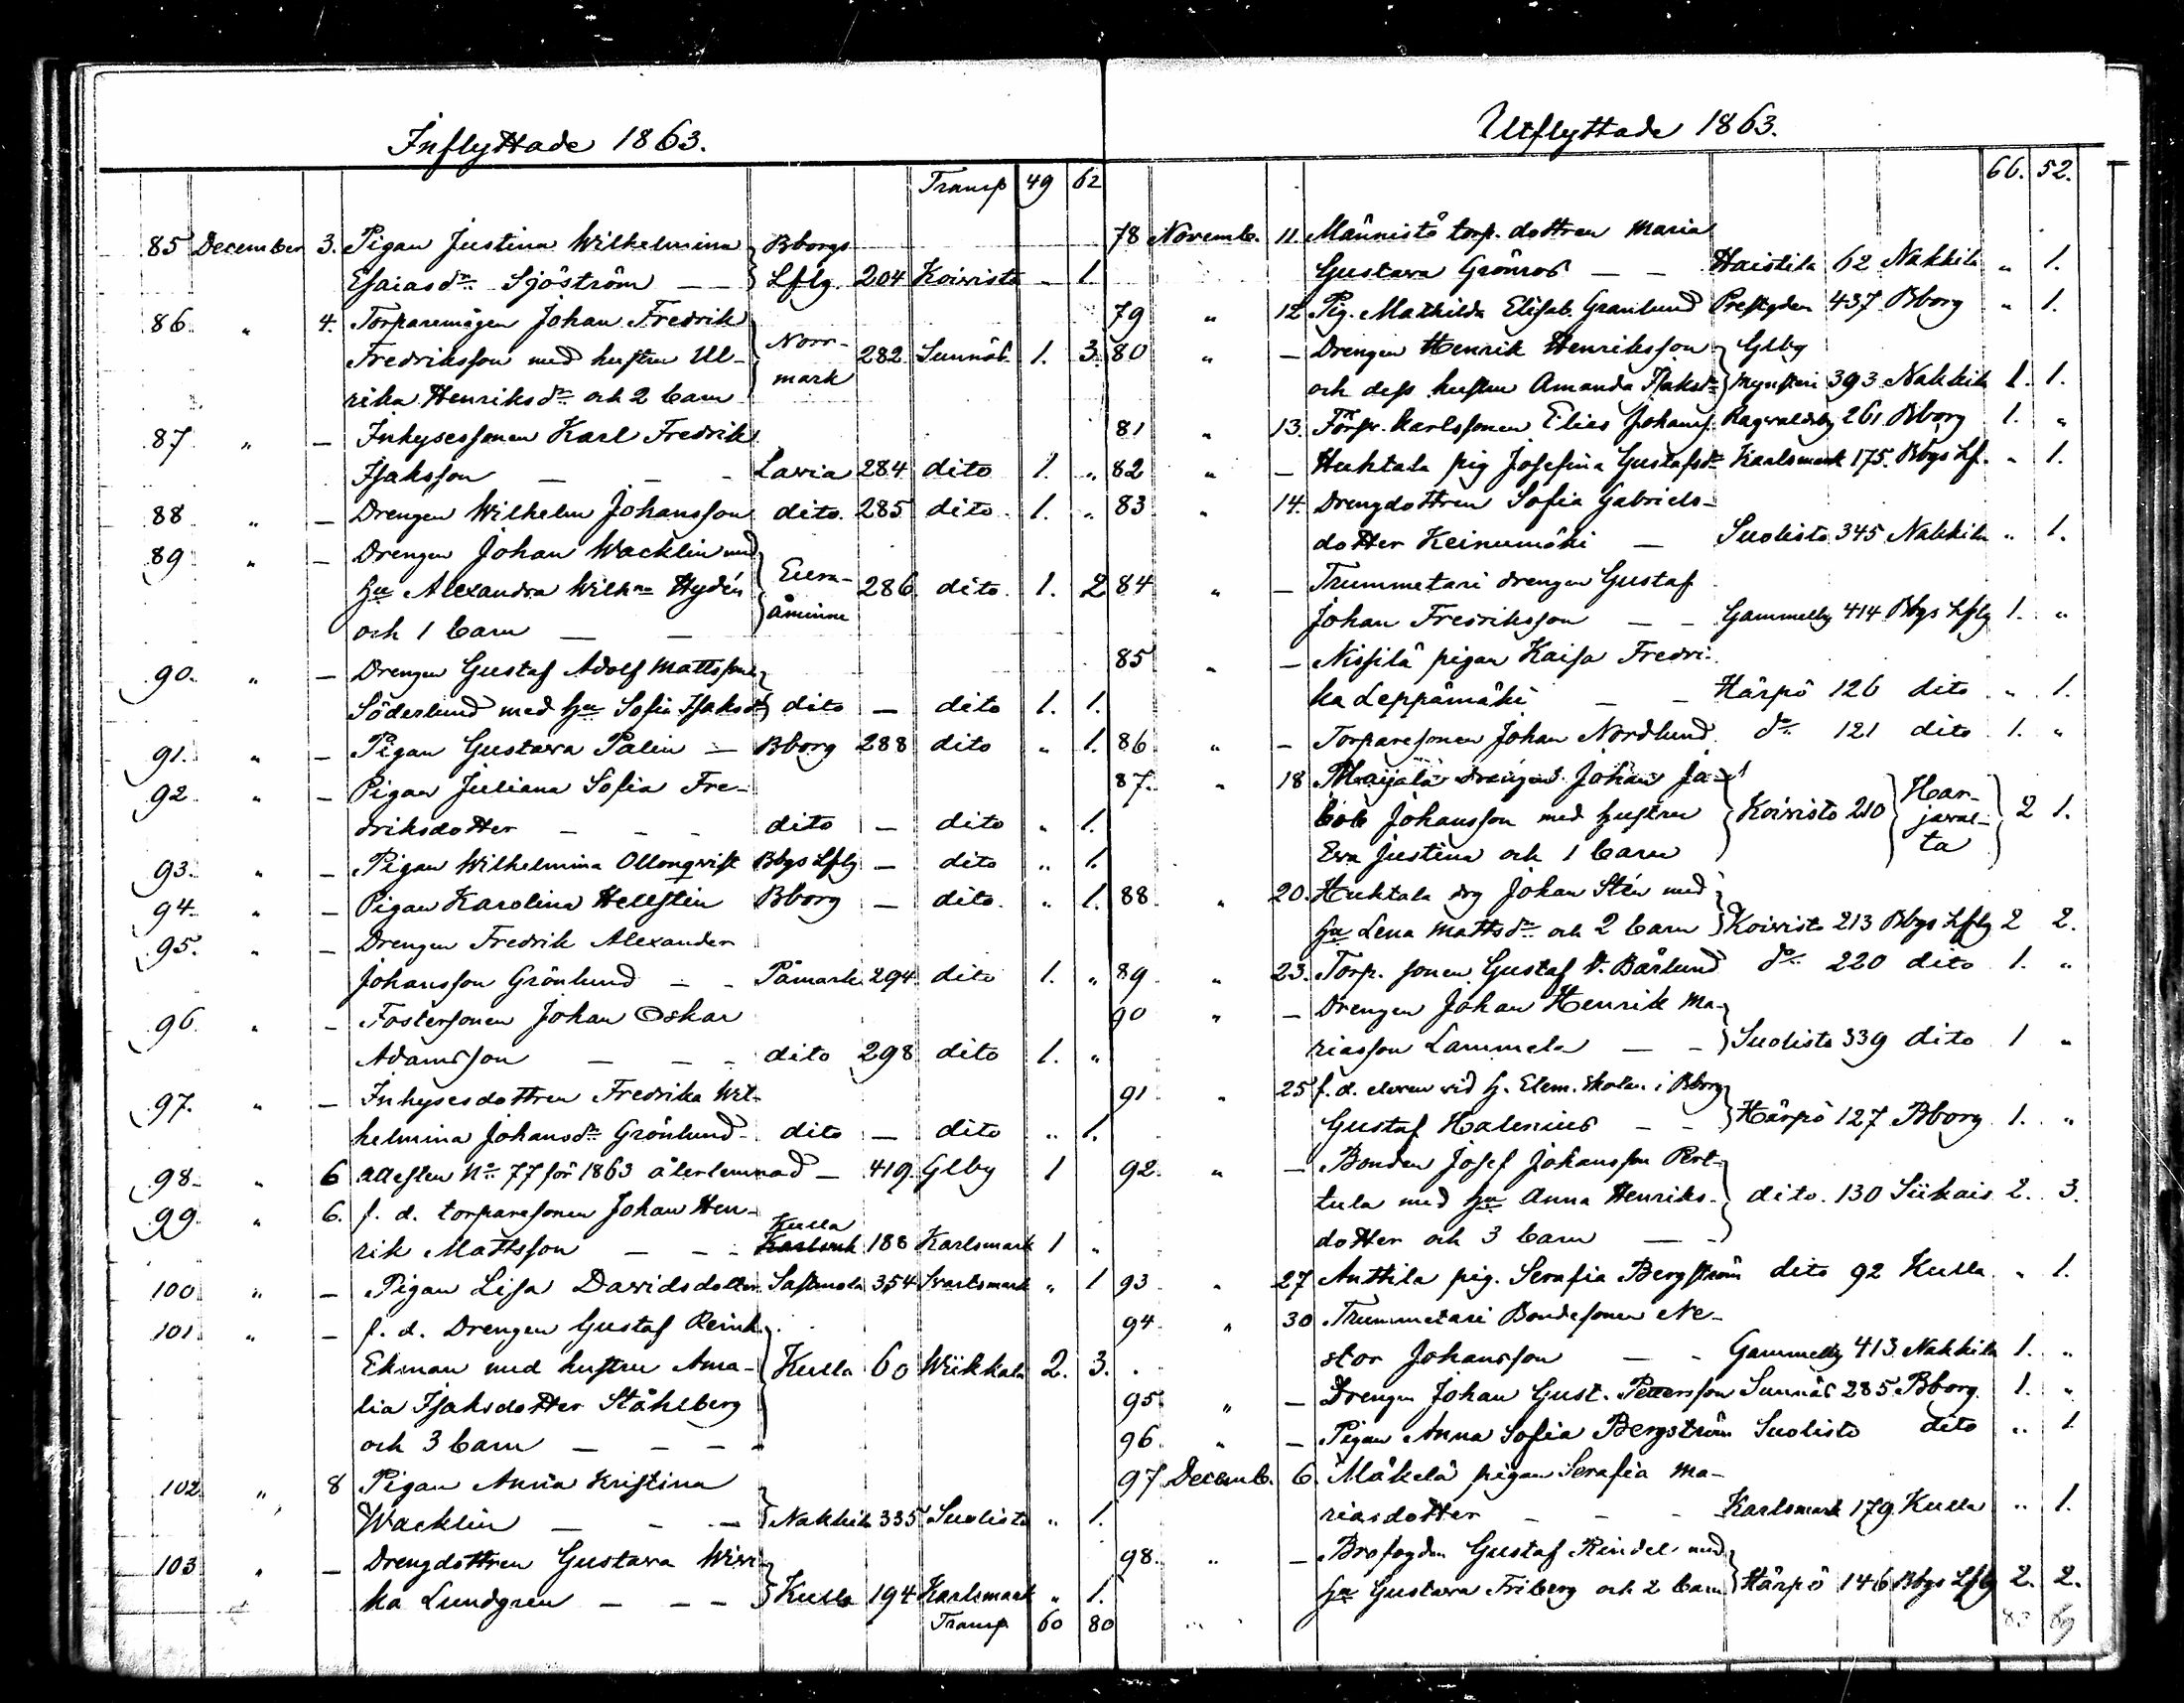 Inflyttade 1863.
Transp 49 62
85 December 3. Pigan Justina Wilhelmina Bborgs
Esaiasdr. Sjöström — — Lflg. 204 Koivisto - 1.
86 " 4. Torparemågen Johan Fredrik
Fredriksson med hustru Ul- Norr- 282 Sunnäs 1. 3.
rika Henriksdr och 2 barn mark
87 " — Inhysessonen Karl Fredrik
Isaksson — — Lavia 284 dito 1. "
88 " — Drengen Wilhelm Johansson dito. 285 dito. 1. "
89 " — Drengen Johan Wacklin med
hu Alexandra Wilhna Hydén Eura- 286 dito. 1. 2
och 1 barn — — åminne
90. " — Drengen Gustaf Adolf Mattsson
Söderlund med hu Sofia Isaksdr dito — dito 1. 1.
91. " — Pigan Gustava Palin — Bborg 288 dito " 1.
92 " — Pigan Juliana Sofia Fre-
driksdotter — — — dito — dito " 1.
93. " — Pigan Wilhelmina Ollonqvist Bbgs Lflg — dito " 1.
94. " — Pigan Karolina Hellstén Bborg — dito. " 1.
95. " — Drengen Fredrik Alexander
Johansson Grönlund — — Påmark 294. dito 1. "
96. " — Fostersonen Johan Oskar
Adamsson — — — dito 298 dito 1. "
97. " — Inhysesdottren Fredrika Wil-
helmina Johansdr Grönlund dito — dito " 1.
98. " 6 attesten No 77 för 1863 återlemnad — 419. Glby 1
99. " 6. f. d. torparesonen Johan Hen- Kulla
rik Mattsson — — — Karlsmk 188 Karlsmark 1 "
100 " — Pigan Lisa Davidsdotter Sastmola 354 Svartsmark " 1
101. " — f. d. Drengen Gustaf Reinh.
Ekman med hustru Ama- Kulla 60 Wiikkala 2. 3.
lia Isaksdotter Ståhlberg
och 3 barn — — — —
102 " 8 Pigan Anna Kristina
Wacklin — — — Nakkila 335 Suolisto " 1.
103 " — Drengdottren Gustava Wiwi-
ka Lundgren — — — Kulla 194 Karlsmark " 1.
Transp 60 80
Utflyttade 1863.
66. 52.
78 Novemb. 11. Männistö torp. dottren Maria
Gustava Grönros — — Haistila 62 Nakkila " 1.
79 " 12 Pig. Mathilda Elisab. Granlund Prestgden 437 Bborg " 1.
80 " — Drengen Henrik Henriksson Glby
och dess hustru Amanda Isaksdr Mynsteri 393 Nakkila 1. 1.
81 " 13. Förpr. karlssonen Elias Johanss. Ragvaldsby 261 Bborg 1. "
82 " — Huhtala pig Josefina Gustafsdr Karlsmark 175. Bbgs Lf. " 1.
83 " 14. Drengdottren Sofia Gabriels-
dotter Keinumäki — Suolisto 345 Nakkila " 1.
84 " — Trummetari drengen Gustaf
Johan Fredriksson — — Gammelby 414 Bbgs Lflg 1. "
85 " — Nissilä pigan Kaisa Fredri-
ka Leppämäki — — Härpö 126 dito " 1.
86 " — Torparesonen Johan Nordlund do 121 dito 1. "
87. " 18 Maijala drengen Johan Ja-
kob Johansson med hustru Koivisto 210 Har-javal-ta 2 1.
Eva Justina och 1 barn
88 " 20. Huhtala drg Johan Stén med
hu Lena Mattsdr och 2 barn Koivisto 213 Bbgs Lflg 2 2.
89 " 23. Torp. sonen Gustaf V. Bärlund do. 220 dito 1. "
90 " — Drengen Johan Henrik Ma-
riasson Lammela — — Suolisto 339 dito 1 "
91 " 25 f. d. eleven vid h. Elem. skolan i Bborg
Gustaf Halenius — — Härpö 127 Bborg 1. "
92. " — Bonden Josef Johansson Pert-
tula med hu Anna Henriks- dito. 130 Siikais 2. 3.
dotter och 3 barn — —
93 " 27 Anttila pig. Serafia Bergström dito 92 Kulla " 1.
94 " 30 Trummetari Bondesonen Ne-
stor Johansson — — Gammelby 413 Nakkila 1. "
95 " — Drengen Johan Gust. Pettersson Sunnäs 285 Bborg. 1. "
96. " — Pigan Anna Sofia Bergström Suolisto dito " 1
97 Decemb. 6. Mäkelä pigan Serafia Ma-
riasdotter — — — Karlsmark 179 Kulla " 1.
98. " — Brofogden Gustaf Rindel med
hu Gustava Friberg och 2 barn Härpö 146 Bbgs Lflg 2. 2.
83 69